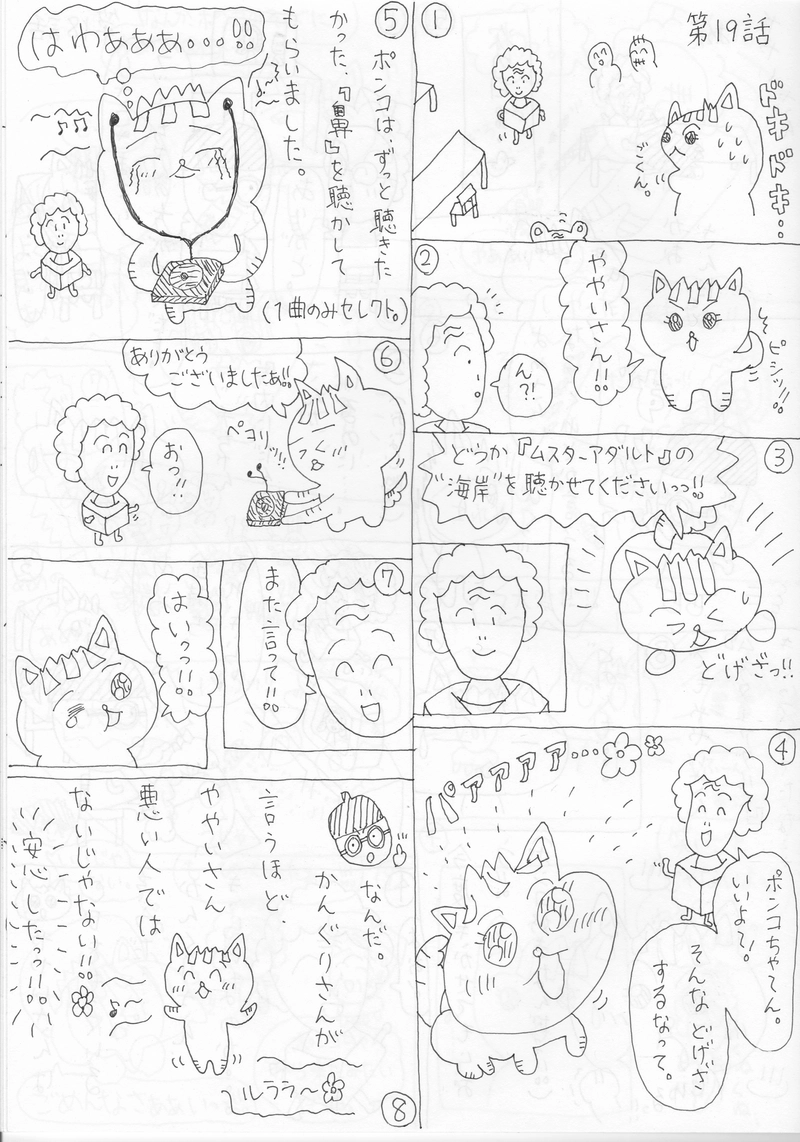 第19話
①
ドキドキ・・
ごくん。
②
ピシッ!!
ややいさん!!
ん?!
③
どうか『ムスターアダルト』の
“海岸”を聴かせてくださいっっ!!
どげざっ!!
④
パァァァァ・・・
ポンコちゃん。
いいよォ!
そんな どげざ
するなって。
⑤
ポンコは、ずっと聴きた
かった、『鼻』を聴かして
もらいました。
はわぁぁぁ・・・!!
(1曲のみセレクト。)
⑥
ありがとう
ございましたぁ!!
ペコリッ!!
おっ!!
⑦
また言って!!
はいっっ!!
⑧
なんだ。
かんぐりさんが
言うほど、
ややいさん
悪い人では
ないじゃない!!
安心したっっ!!
ルララ〜